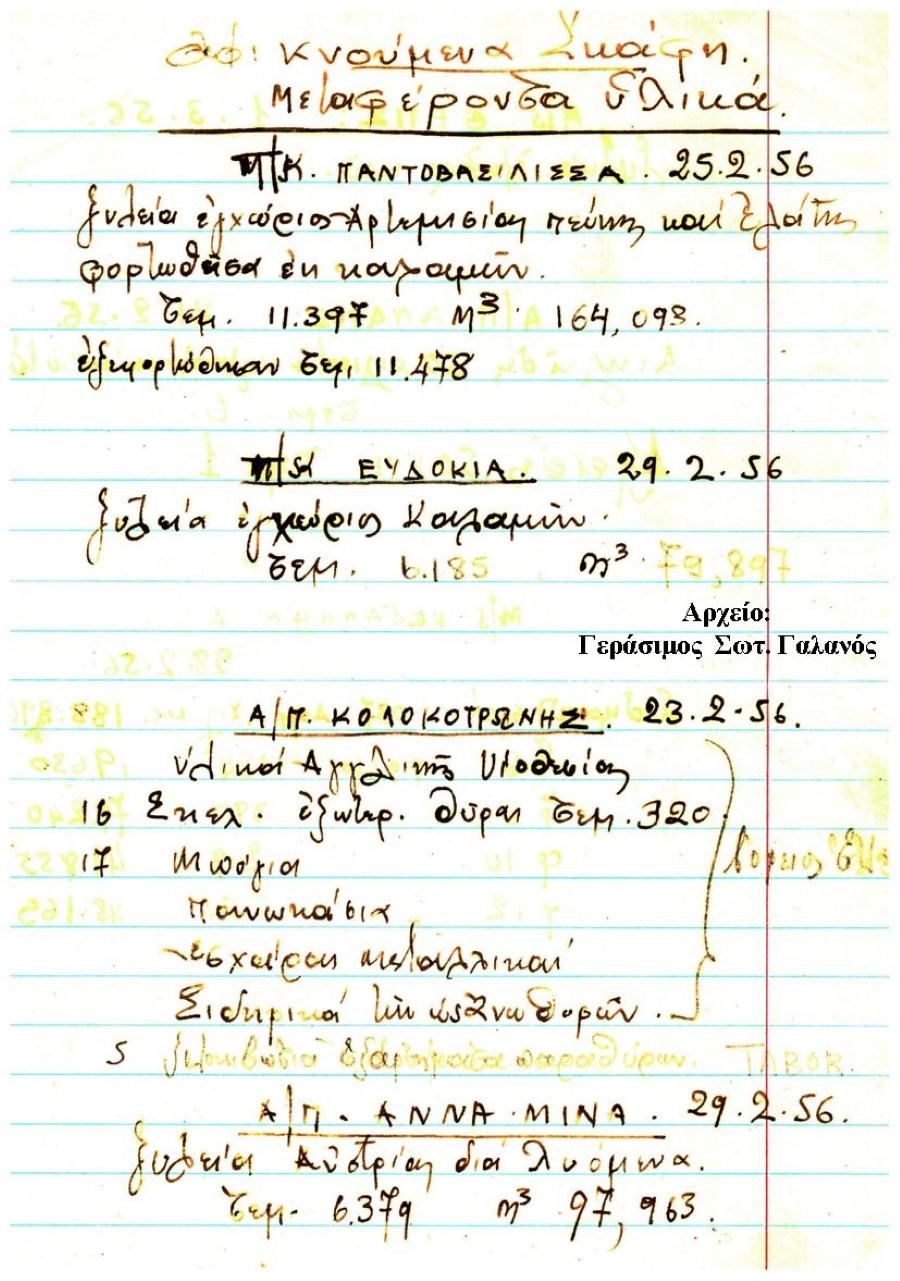 Αφικνούμενα Σκάφη.
Μεταφέροντα ὑλικά.
Π/Κ. ΠΑΝΤΟΒΑΣΙΛΙΣΣΑ. 25.2.56
Ξυλεία ἐγχώριος Αρτεμησίου πεύκης καί Ἐλάτης
φορτωθεῖσα ἐκ καλαμῶν.
Τεμ. 11.397 Μ3 164,093.
ἐξεφορτώθηκαν τεμ. 11.478
Π/Κ ΕΥΔΟΚΙΑ. 29.2.56
Ξυλεία ἐγχώριος Καλαμῶν.
Τεμ. 6.185 m3. 79,897
Αρχείο:
Γεράσιμος Σωτ. Γαλανός
Α/Π. ΚΟΛΟΚΟΤΡΩΝΗΣ. 23.2.56.
ὑλικά Αγγλικῆς Υιοθεσίας
16 Σκελ. ἐξωτερ. θύραι τεμ. 320
17 Μπόγια
Πανωκάσια
Ἐσχάραι μεταλλικαί
Σιδηρικά τῶν θυρῶν.
5 κιβώτια ἐξαρτήματα παραθύρων. TABOR
Α/Π. ΑΝΝΑ-ΜΙΝΑ. 29.2.56.
Ξυλεία Αὐστρίας διά λυόμενα.
Τεμ. 6.379 m3 97,963.